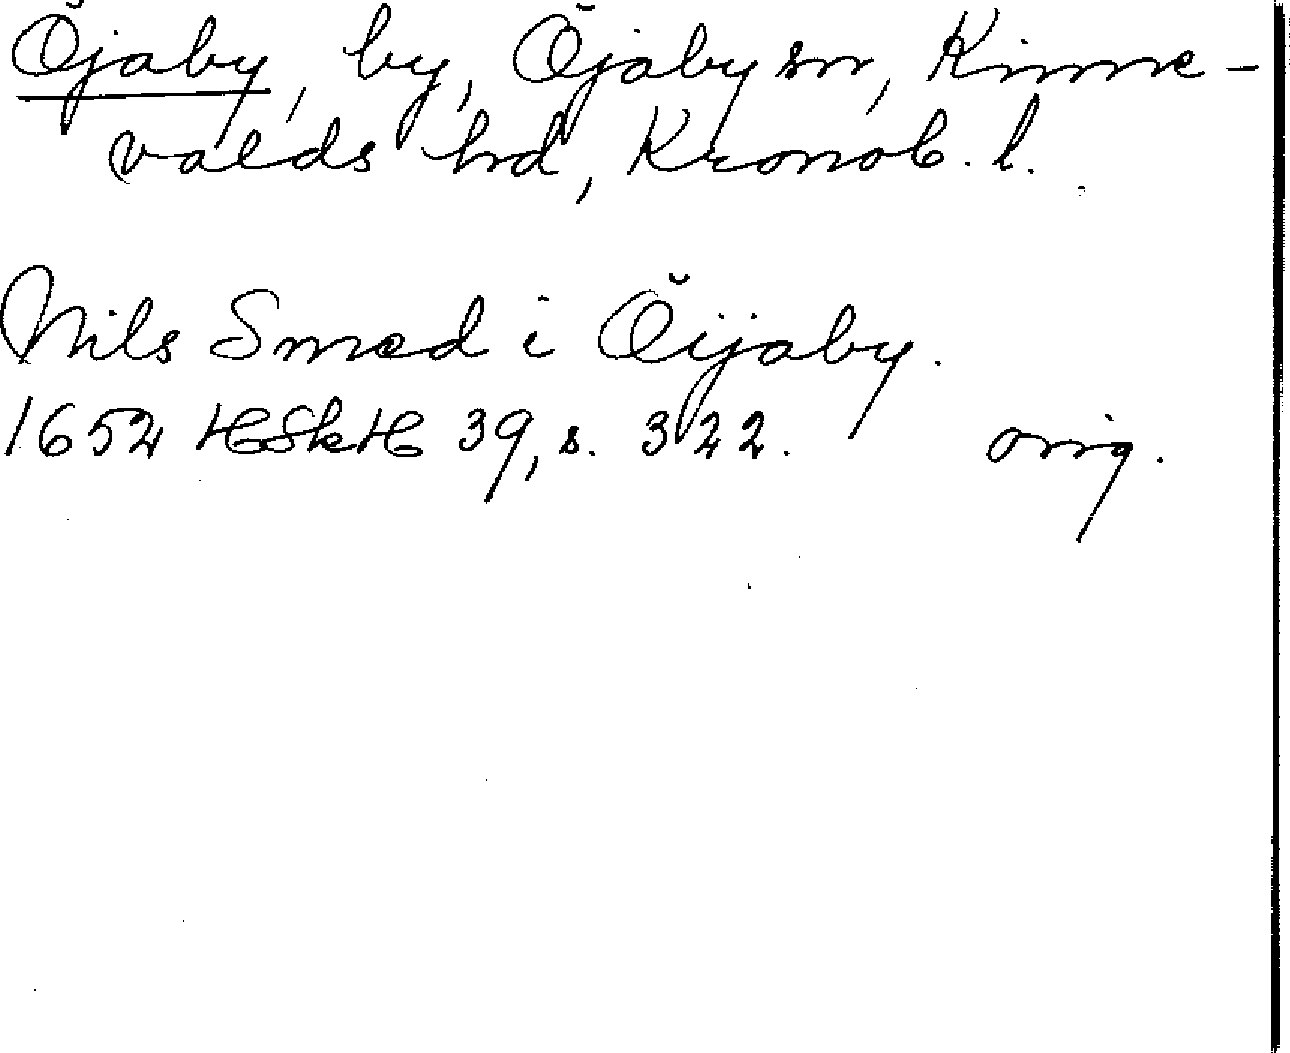 Öjaby, by, Öjaby sn, Kinne-
valds hd, Kronob. l.
Nils Smed i Öijaby.
1652 HSkH 39, s. 322. orig.